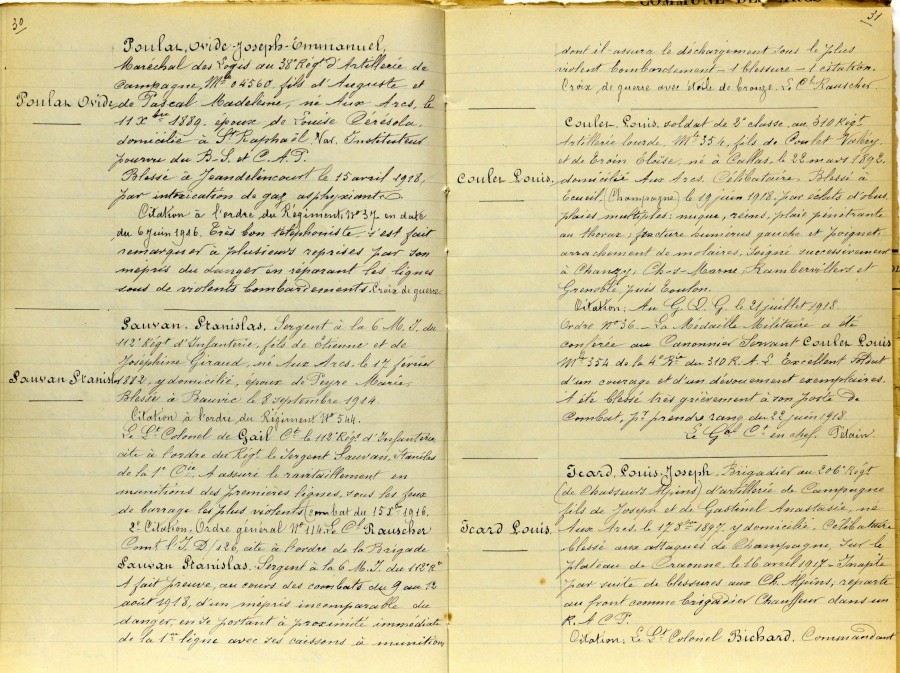 30
Poulat, Ovide-Joseph-Emmanuel,
Maréchal des Logis au 38e Régt d'Artillerie de
Campagne, Mle 04560, fils d'Auguste et
Poulat Ovide
de Pascal Madeleine, né Aux Arcs, le
11 Xbre 1889. époux de Louise Pérésola,
domicilié à St Raphaël, Var. Instituteur
pourvu du B-S. et C.A.P.
Blessé à Jeandelincourt le 15 avril 1918,
par intoxication de gaz asphyxiants.
Citation à l'ordre du Régiment, No 37 en date
du 6 juin 1916. Très bon téléphoniste s'est fait
remarquer à plusieurs reprises par son
mépris du danger en réparant les lignes
sous de violents bombardements. Croix de guerre.
Sauvan, Stanislas, Sergent à la 6 M.I. du
112e Régt d'Infanterie, fils de Etienne et de
Joséphine Giraud, né Aux Arcs, le 17 février
Sauvan Stanislas
1882, y domicilié, époux de Peyre Marie,
Blessé à Bauvic le 8 septembre 1914.
Citation à l'ordre du Régiment No 544.
Le Lt Colonel de Gail Ct le 112e Régt d'Infanterie
cite à l'ordre du Régt le Sergent Sauvan, Stanislas
de la 1re Cie. A assuré le ravitaillement en
munitions des premières lignes, sous les feux
de barrage les plus violents (combat du 15 Xbre 1916.
2e Citation, Ordre général No 114. Le Ct Rauscher
Comt l'I.D/126, cite à l'ordre de la Brigade
Sauvan Stanislas. Sergent à la 6 M.I. du 112e Rt
A fait preuve, au cours des combats du 9 au 12
août 1918, d'un mépris incomparable du
danger, en se portant à proximité immédiate
de la 1re ligne avec ses caissons à munition
COMMUNE DES ARCS
31
dont il assura le déchargement sous le plus
violent bombardement - 1 blessure - 1 citation.
Croix de guerre avec étoile de bronze. Le Ct Rauscher.
Coulet, Louis, soldat de 2e classe, au 310 Régt
Artillerie lourde. Mle 354, fils de Coulet
et de Eloïse, né à Callas, le 22 mars 1892,
Coulet Louis,
domicilié Aux Arcs. Célibataire. Blessé à
Ecueil, (Champagne) le 19 juin 1918, par éclats d'obus,
plaies multiples: nuque, reins, plaie pénétrante
au thorax, fracture humérus gauche et poignet,
arrachement de molaires, soigné successivement
à Chanzy, Ch-s-Marne, Rambervillers et
Grenoble, puis Toulon.
Citation: Au G.Q.G. le 21 juillet 1918.
Ordre No 36 - La Médaille Militaire a été
conférée au Canonnier Servant Coulet Louis
Mle 354 de la 4e Bie du 310 R.A.L. Excellent soldat
d'un courage et d'un dévouement exemplaires.
A été blessé très grièvement à son poste de
Combat, pr prendre rang du 22 juin 1918.
Le Gal Ct en chef. Pétain.
Icard, Louis-Joseph, Brigadier au 206e Régt
(de Chasseurs Alpins) d'artillerie de Campagne
fils de Joseph et de Gastinel Anastasie, né
Icard Louis
Aux Arcs, le 17 8bre 1897, y domicilié. Célibataire
blessé aux attaques de Champagne, sur le
plateau de Craonne le 16 avril 1917 - Inapte
par suite de blessures aux Ch. Alpins, reparte
au front comme brigadier Chauffeur dans un
R.A.C.P.
Citation: Le Lt Colonel Bichard, Commandant